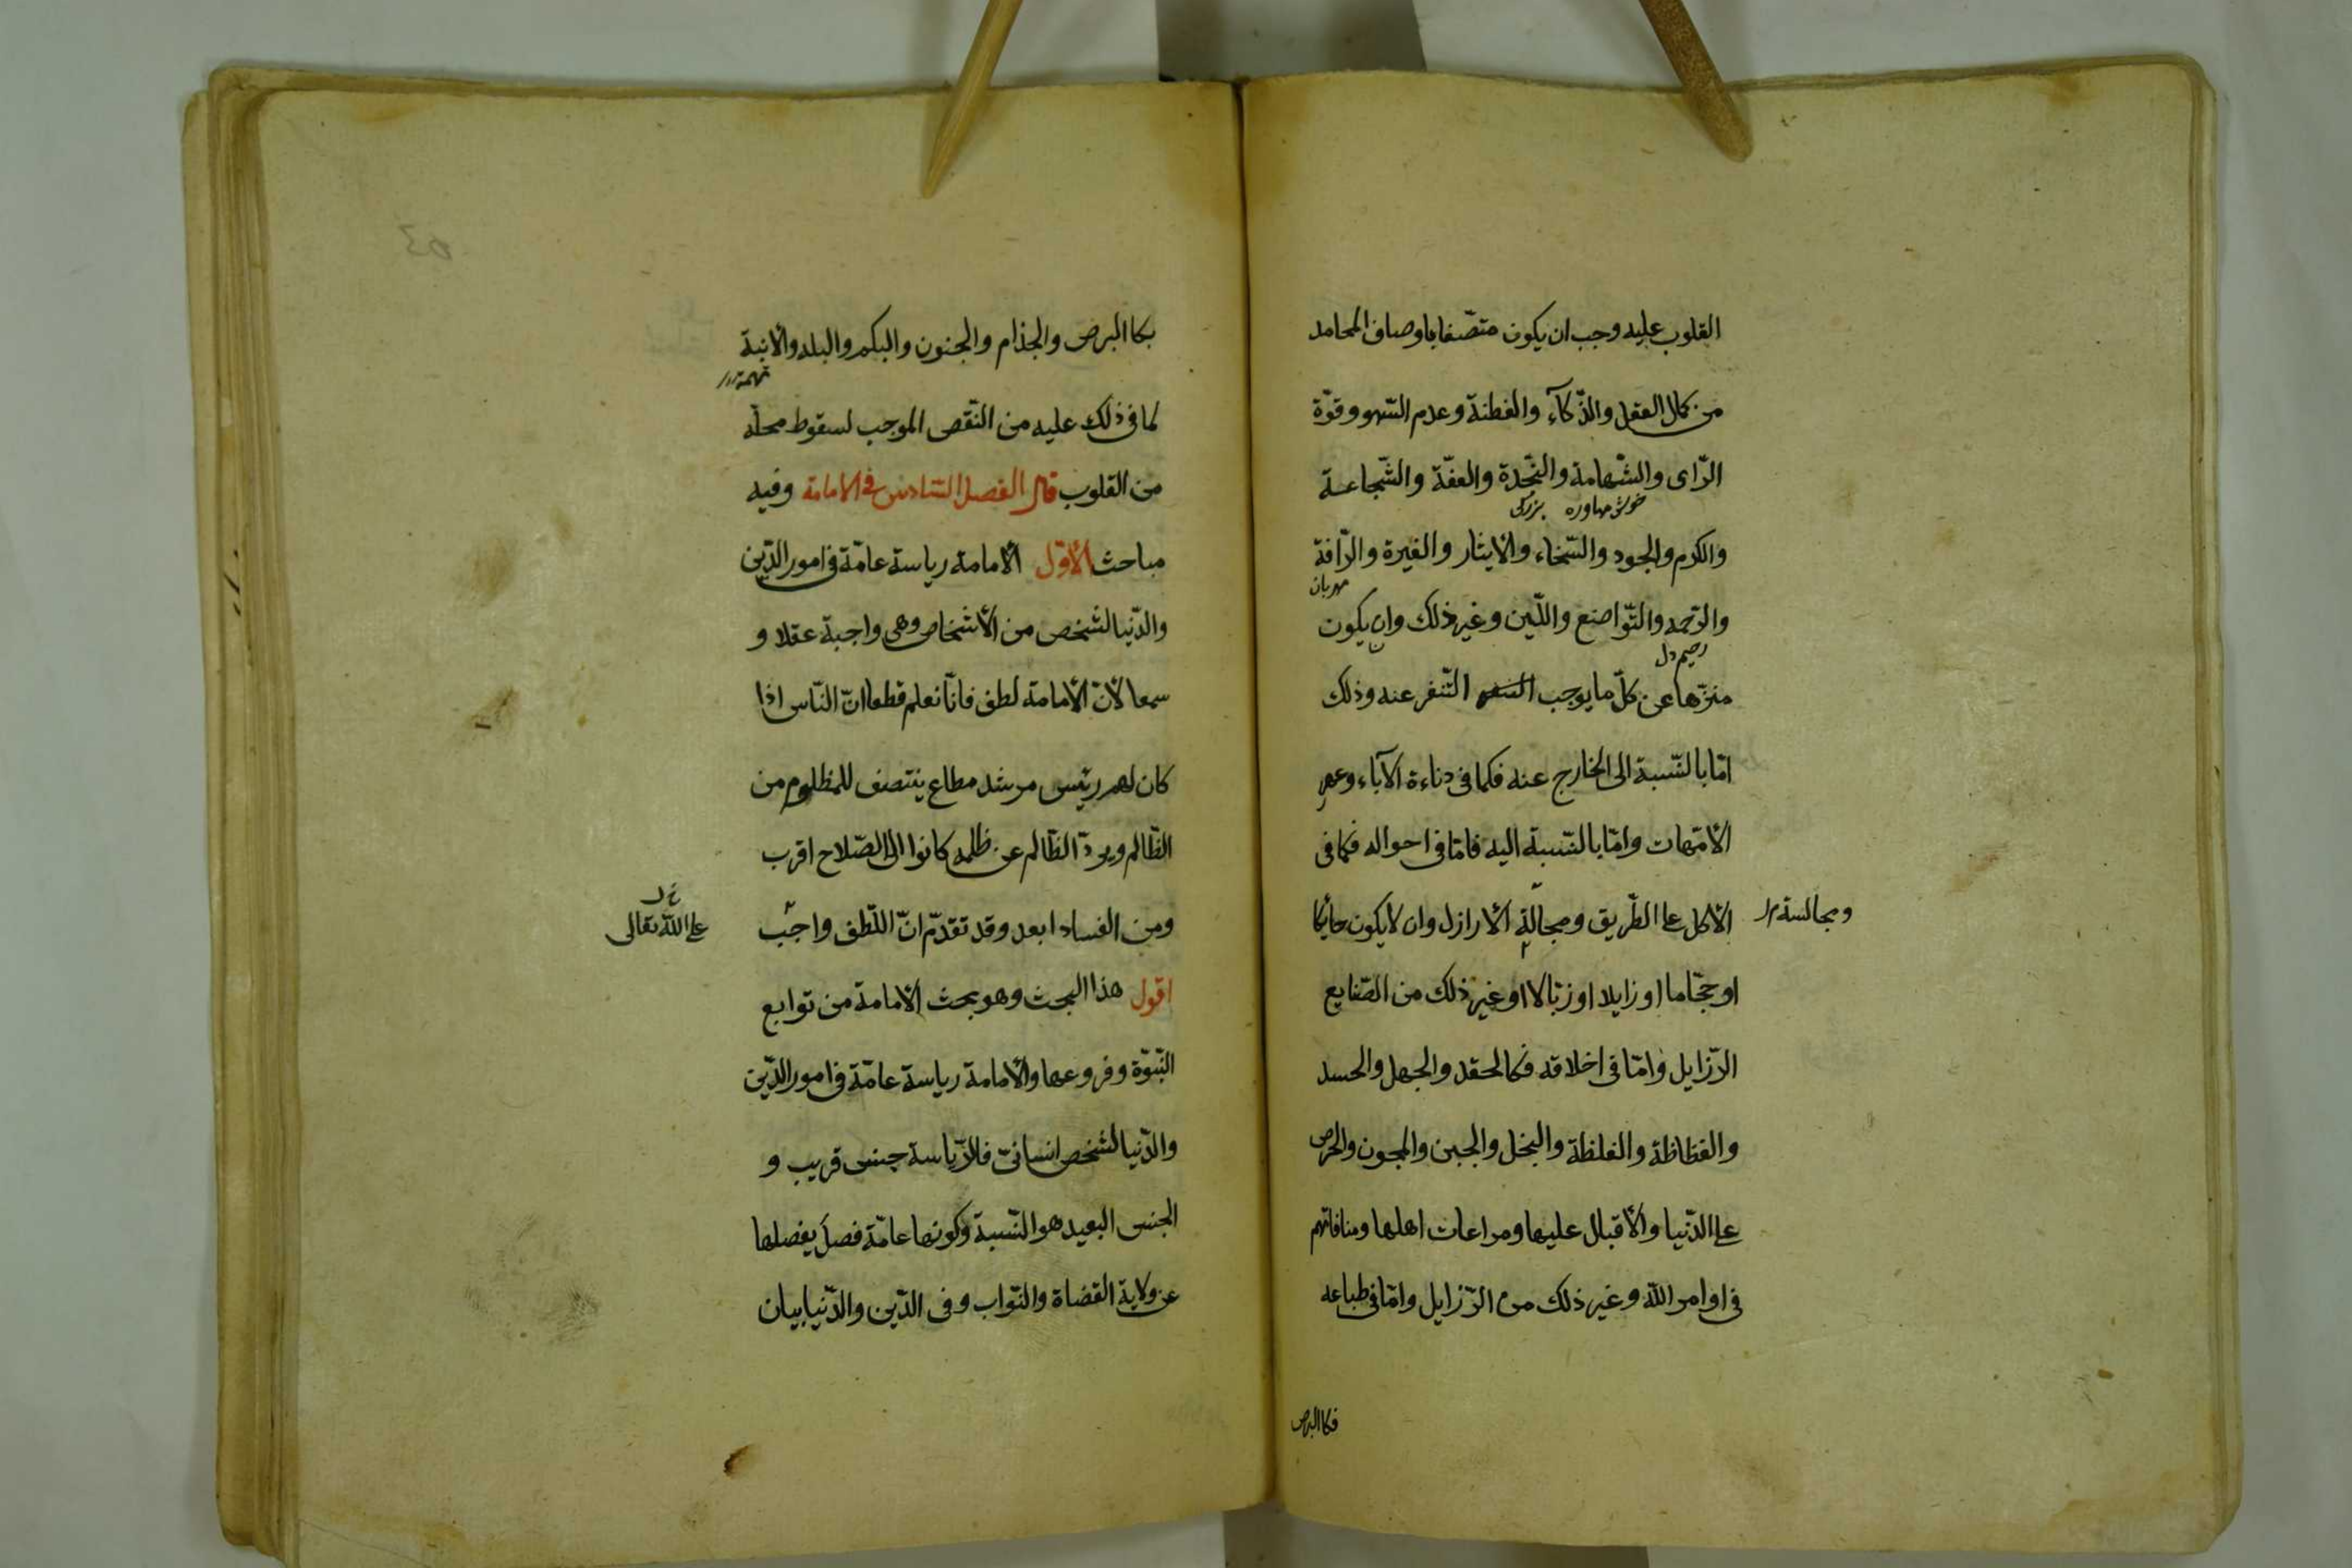 القلوب عليه وجب ان يكون متصّفا باوصاف المحامد
من كمال العقل والذّكآء والفطنة وعدم السّهو وقوّة
الرّاى والشّهامة والنّجدة والعفّة والشّجاعة
بزرگى
والكرم والجود والسّخاء والايثار والغيرة والرّافة
مهربان
والرّحمه والتّواضع واللّين وغير ذلك وان يكون
رحيم دل
منزّها عن كلّ ما يوجب التّنفر عنه وذلك
امّا بالنّسبة الى الخارج عنه فكما فى دناءة الآباء وعهر
الامّهات وامّا بالنّسبة اليه فامّا فى احواله فكما فى
الاكل على الطّريق ومجالة الارازل وان لا يكون حايكا
ومجالسة
او حجّاما او زايلا او زبّالا او غير ذلك من الصّنايع
الرّزايل وامّا فى اخلاقه فكالحقد والجهل والحسد
والفظاظة والغلظة والبخل والجبن والمجون والحرص
على الدّنيا والاقبال عليها ومراعات اهلها ومنافاتهم
فى اوامر اللّه وغير ذلك من الرّزايل وامّا فى طباعه
فكا البرص
بكا البرص والجذام والجنون والبكم والبله والابنة
لما فى ذلك عليه من النّقص الموجب لسقوط محلّه
من القلوب قال الفصل السّادس فى الامامة وفيه
مباحث الاوّل الامامة رياسة عامّة فى امور الدّين
والدّنيا لشخص من الاشخاص وهى واجبة عقلا و
سمعا لانّ الامامة لطف فانّا نعلم قطعا انّ النّاس اذا
كان لهم رئيس مرشد مطاع ينتصف للمظلوم من
الظّالم ويردّ الظّالم عن ظلمه كانوا الى الصّلاح اقرب
ومن الفساد ابعد وقد تقدّم انّ اللّطف واجب
على اللّه تعالى
اقول هذا البحث وهو بحث الامامة من توابع
النّبوّة وفروعها والامامة رياسة عامّة فى امور الدّين
والدّنيا لشخص انسانىّ فالرّياسة جنس قريب و
الجنس البعيد هو النّسبة وكونها عامّة فصل يفصلها
عن ولاية القضاة والنّواب وفى الدّين والدّنيا بيان